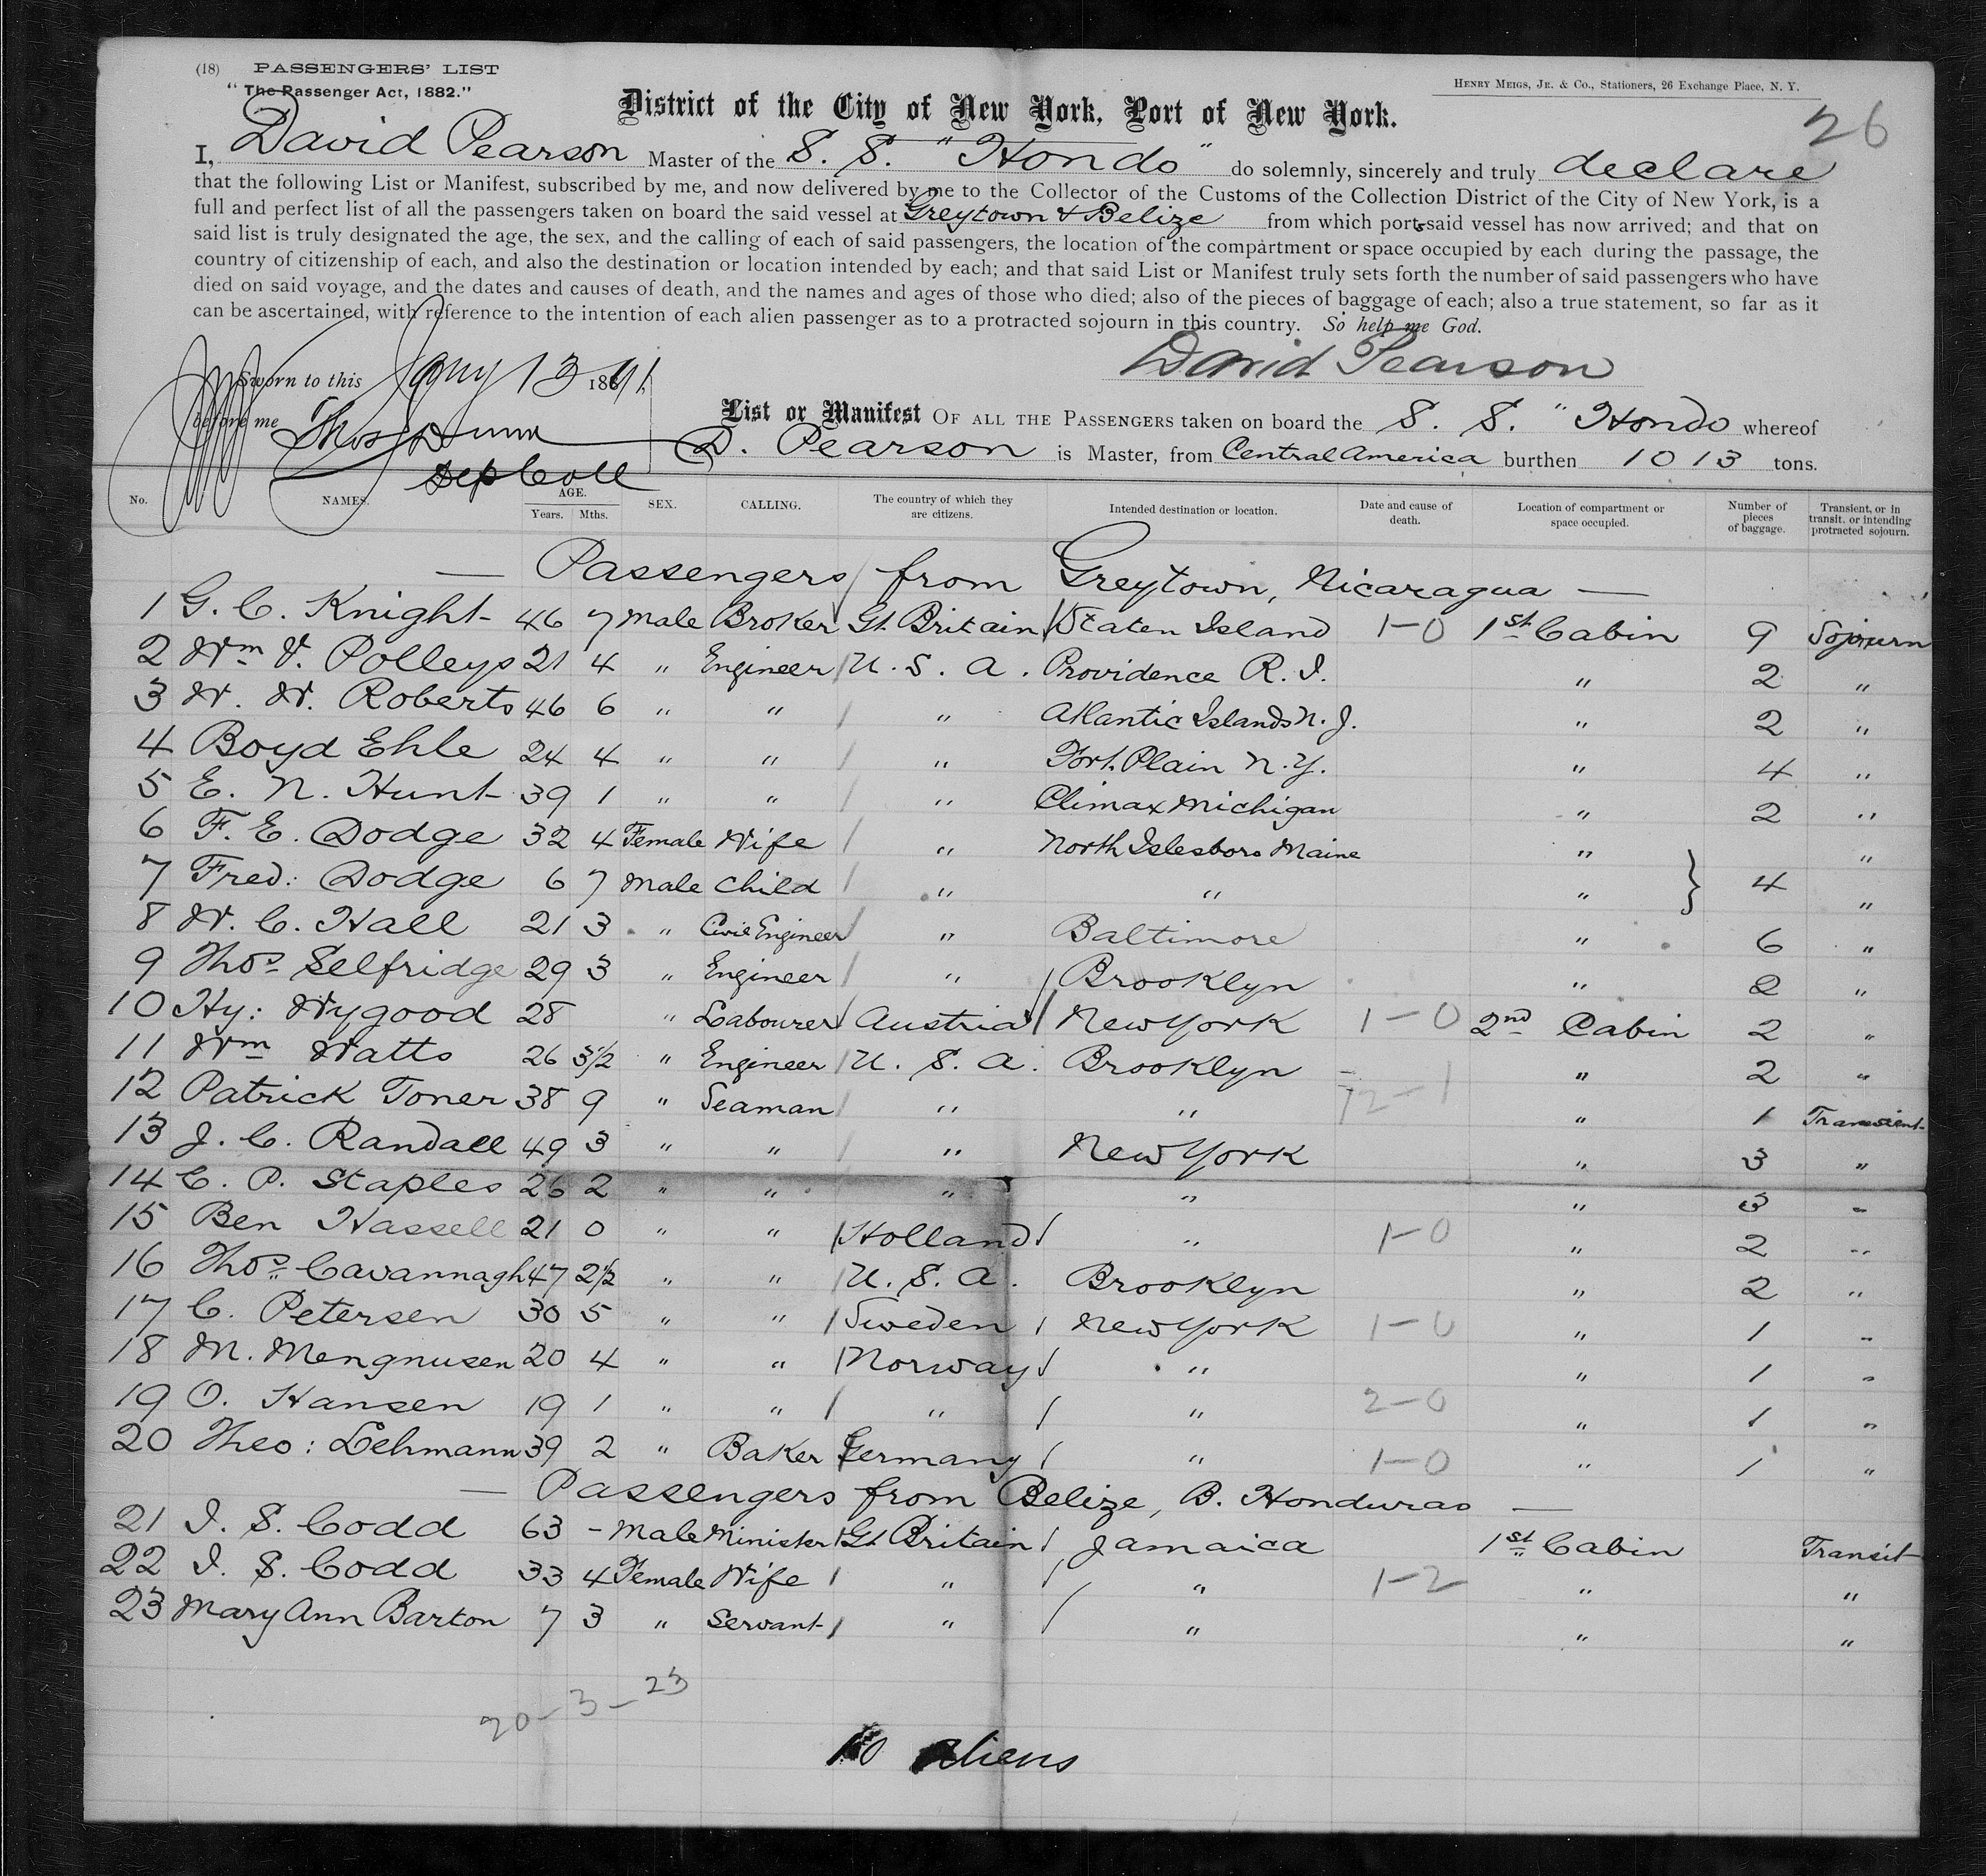 (18) PASSENGERS' LIST
"The Passenger Act, 1882."
HENRY MEIGS, JR. & CO., Stationers, 26 Exchange Place, N. Y.
District of the City of New York, Port of New York.
26
I, David Pearson Master of the S. S. "Hondo" do solemnly, sincerely and truly declare
that the following List or Manifest, subscribed by me, and now delivered by me to the Collector of the Customs of the Collection District of the City of New York, is a
full and perfect list of all the passengers taken on board the said vessel at Greytown & Belize from which ports said vessel has now arrived; and that on
said list is truly designated the age, the sex, and the calling of each of said passengers, the location of the compartment or space occupied by each during the passage, the
country of citizenship of each, and also the destination or location intended by each; and that said List or Manifest truly sets forth the number of said passengers who have
died on said voyage, and the dates and causes of death, and the names and ages of those who died; also of the pieces of baggage of each; also a true statement, so far as it
can be ascertained, with reference to the intention of each alien passenger as to a protracted sojourn in this country. So help me God.
David Pearson
Sworn to this Jany 13 1891
before me Thos Dunn
Dep Coll
List or Manifest OF ALL THE PASSENGERS taken on board the S. S. "Hondo whereof
D. Pearson is Master, from Central America burthen 1013 tons.
No. NAMES. AGE. Years. Mths. SEX. CALLING. The country of which they are citizens. Intended destination or location. Date and cause of death. Location of compartment or space occupied. Number of pieces of baggage. Transient, or in transit, or intending protracted sojourn.
— Passengers from Greytown, Nicaragua —
1 G. C. Knight 46 7 Male Broker Gt. Britain Staten Island 1-0 1st Cabin 9 Sojourn
2 Wm V. Polleys 21 4 " Engineer U. S. A. Providence R. I. " 2 "
3 W. W. Roberts 46 6 " " " Atlantic Islands N. J. " 2 "
4 Boyd Ehle 24 4 " " " Fort Plain N. Y. " 4 "
5 E. N. Hunt 39 1 " " " Climax Michigan " 2 "
6 F. E. Dodge 32 4 Female Wife " North Islesboro Maine " "
7 Fred: Dodge 6 7 Male Child " " " } 4 "
8 W. C. Hall 21 3 " Civil Engineer " Baltimore " 6 "
9 Thos Selfridge 29 3 " Engineer " Brooklyn " 2 "
10 Hy: Wygood 28 " Labourer Austria New York 1-0 2nd Cabin 2 "
11 Wm Watts 26 3½ " Engineer U. S. A. Brooklyn " 2 "
12 Patrick Toner 38 9 " Seaman " " 12-1 " 1 Transient
13 J. C. Randall 49 3 " " " New York " 3 "
14 C. P. Staples 26 2 " " " " " 3 "
15 Ben Hassell 21 0 " " Holland " 1-0 " 2 "
16 Thos. Cavannagh 47 2½ " " U. S. A. Brooklyn " 2 "
17 C. Petersen 30 5 " " Sweden New York 1-0 " 1 "
18 M. Mengnusen 20 4 " " Norway " " 1 "
19 O. Hansen 19 1 " " " " 2-0 " 1 "
20 Theo: Lehmann 39 2 " Baker Germany " 1-0 " 1 "
— Passengers from Belize, B. Honduras —
21 I. S. Codd 63 - Male Minister Gt. Britain Jamaica 1st Cabin Transit
22 I. S. Codd 33 4 Female Wife " " 1-2 " "
23 Mary Ann Barton 7 3 " Servant " " " "
20-3-23
10 Aliens